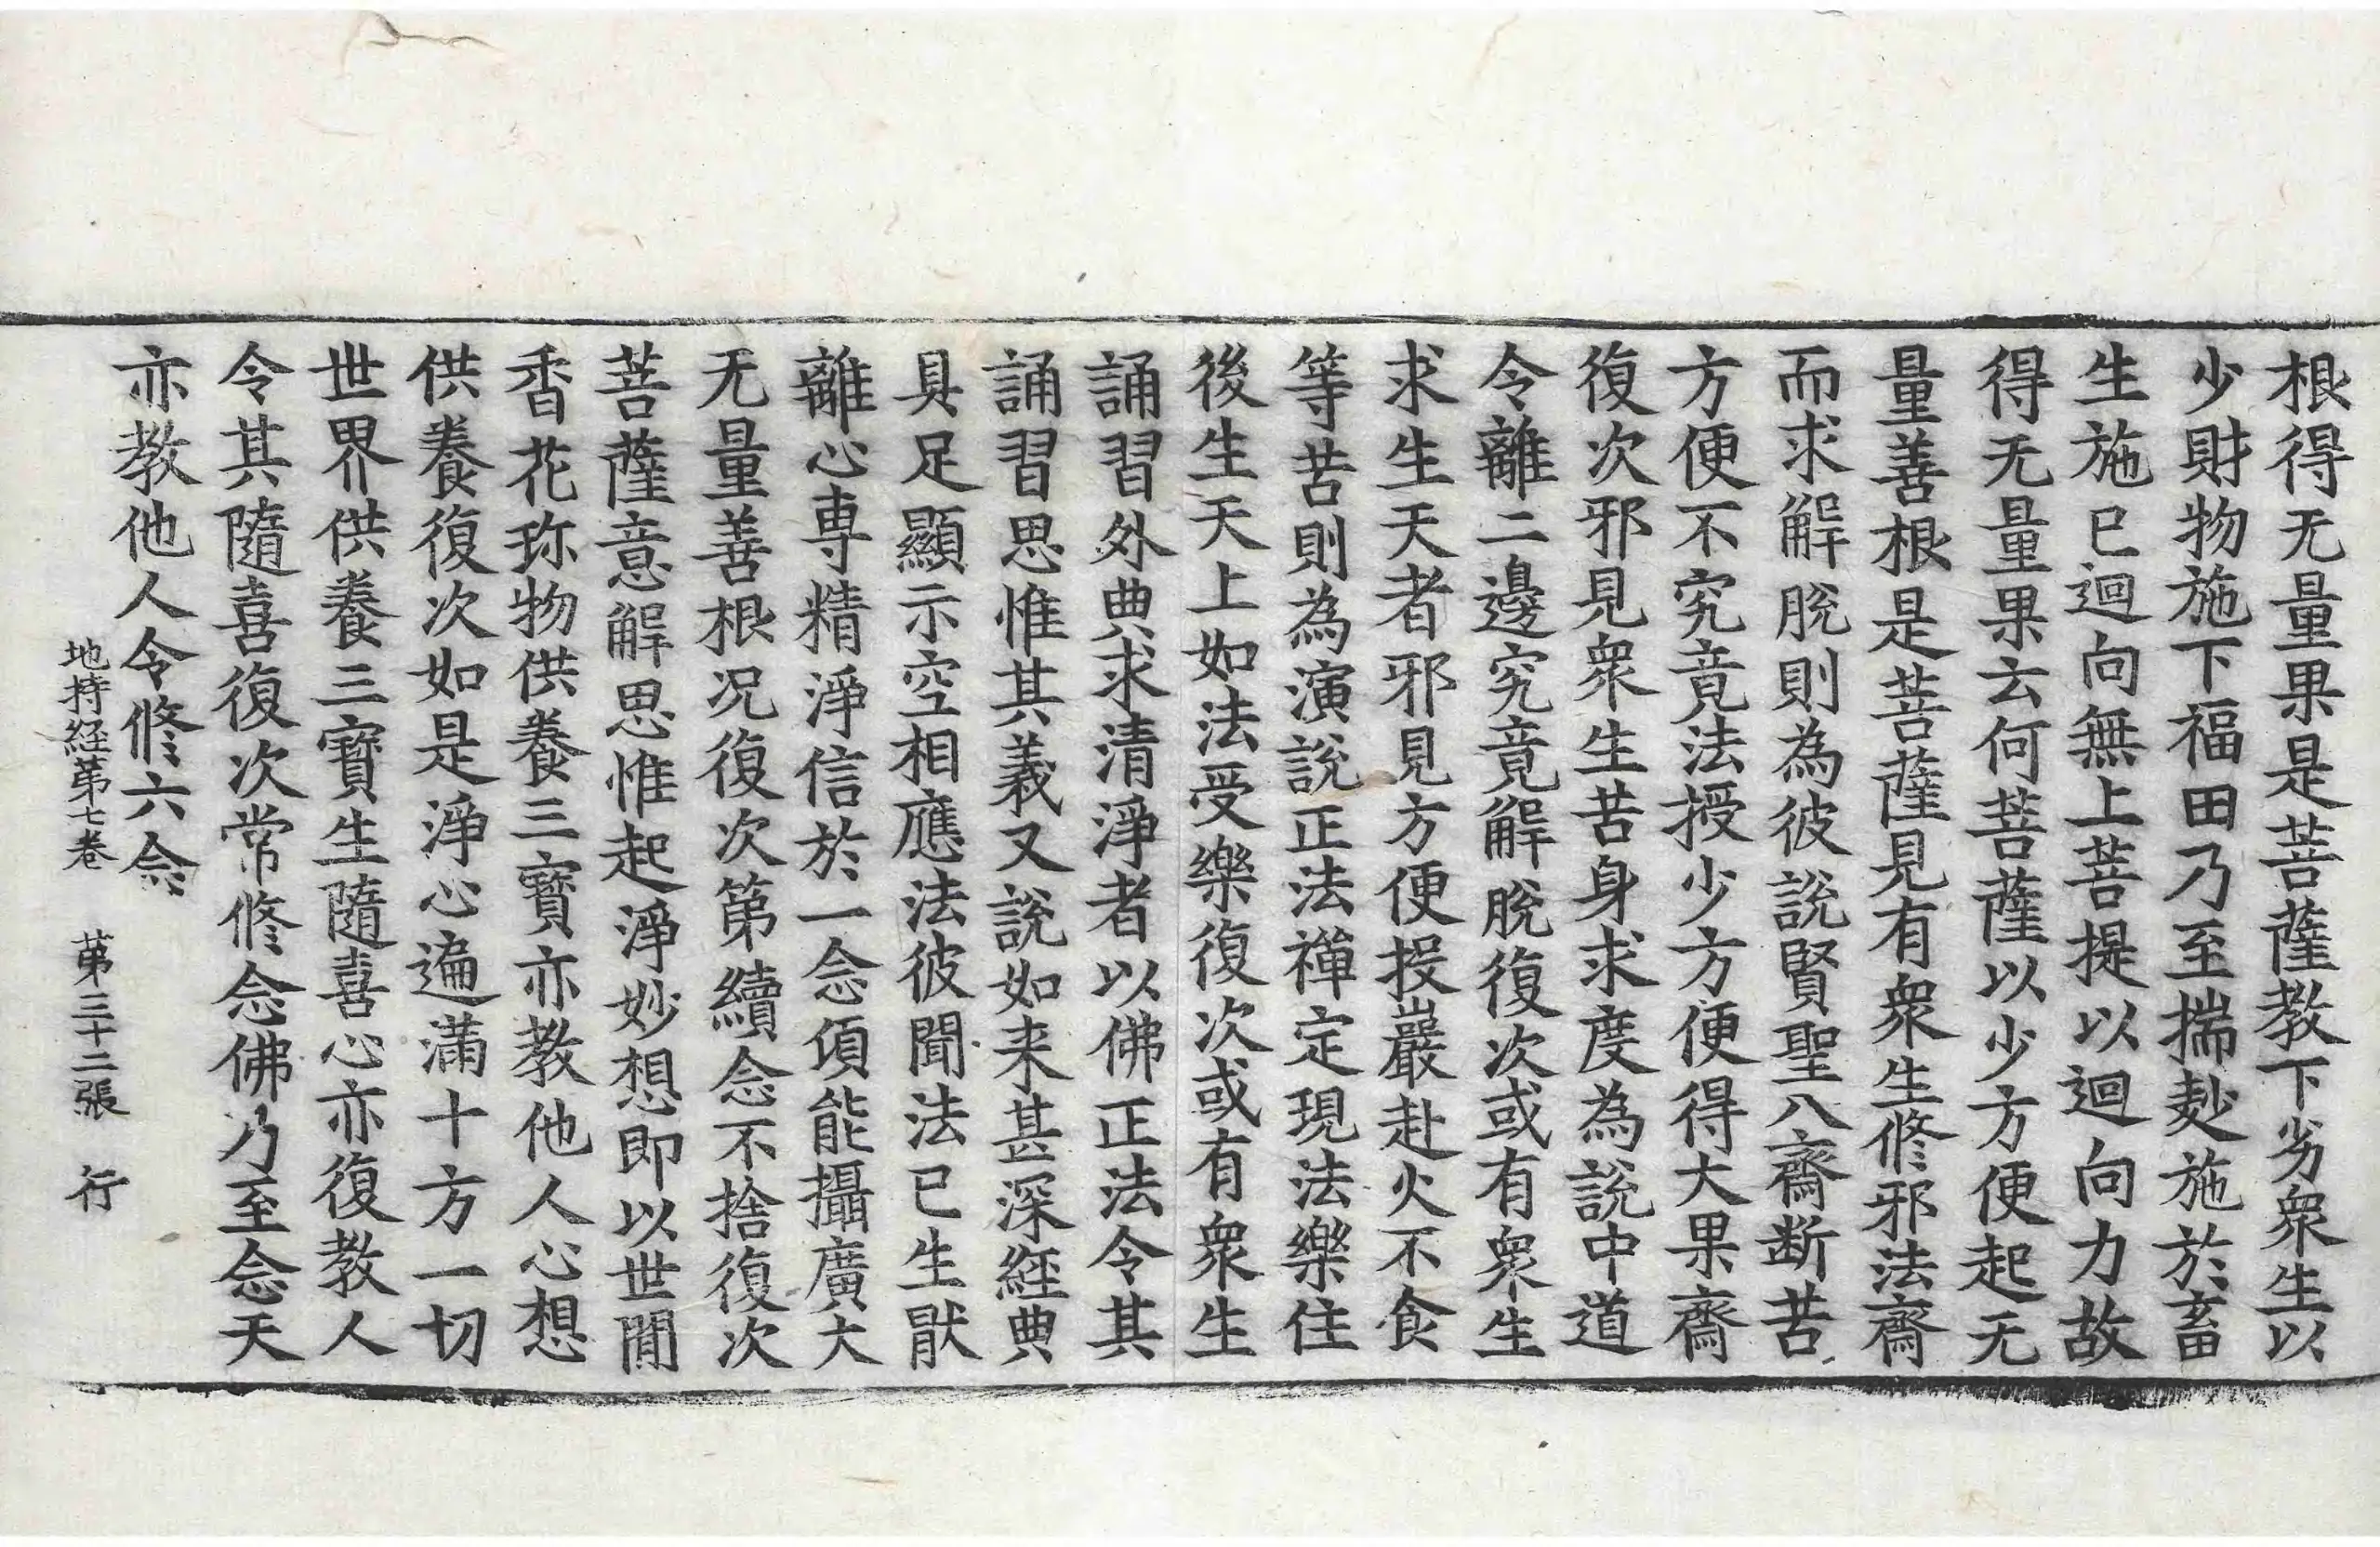 根得无量果是菩薩教下劣衆生以
少財物施下福田乃至揣麨施於畜
生施已迴向無上菩提以迴向力故
得无量果云何菩薩以少方便起无
量善根是菩薩見有衆生修邪法齋
而求解脫則為彼說賢聖八齋断苦
方便不究竟法授少方便得大果齋
復次邪見衆生苦身求度為說中道
令離二邊究竟解脫復次或有衆生
求生天者邪見方便投巖赴火不食
等苦則為演說正法禪定現法樂住
後生天上如法受樂復次或有衆生
誦習外典求清淨者以佛正法令其
誦習思惟其義又說如来甚深經典
具足顯示空相應法彼聞法已生猒
離心専精淨信於一念項能攝廣大
无量善根况復次第續念不捨復次
菩薩意解思惟起淨妙想即以世間
香花珎物供養三寶亦教他人心想
供養復次如是淨心遍滿十方一切
世界供養三寶生隨喜心亦復教人
令其隨喜復次常修念佛乃至念天
亦教他人令修六念
地持経第七卷 第三十二張 行